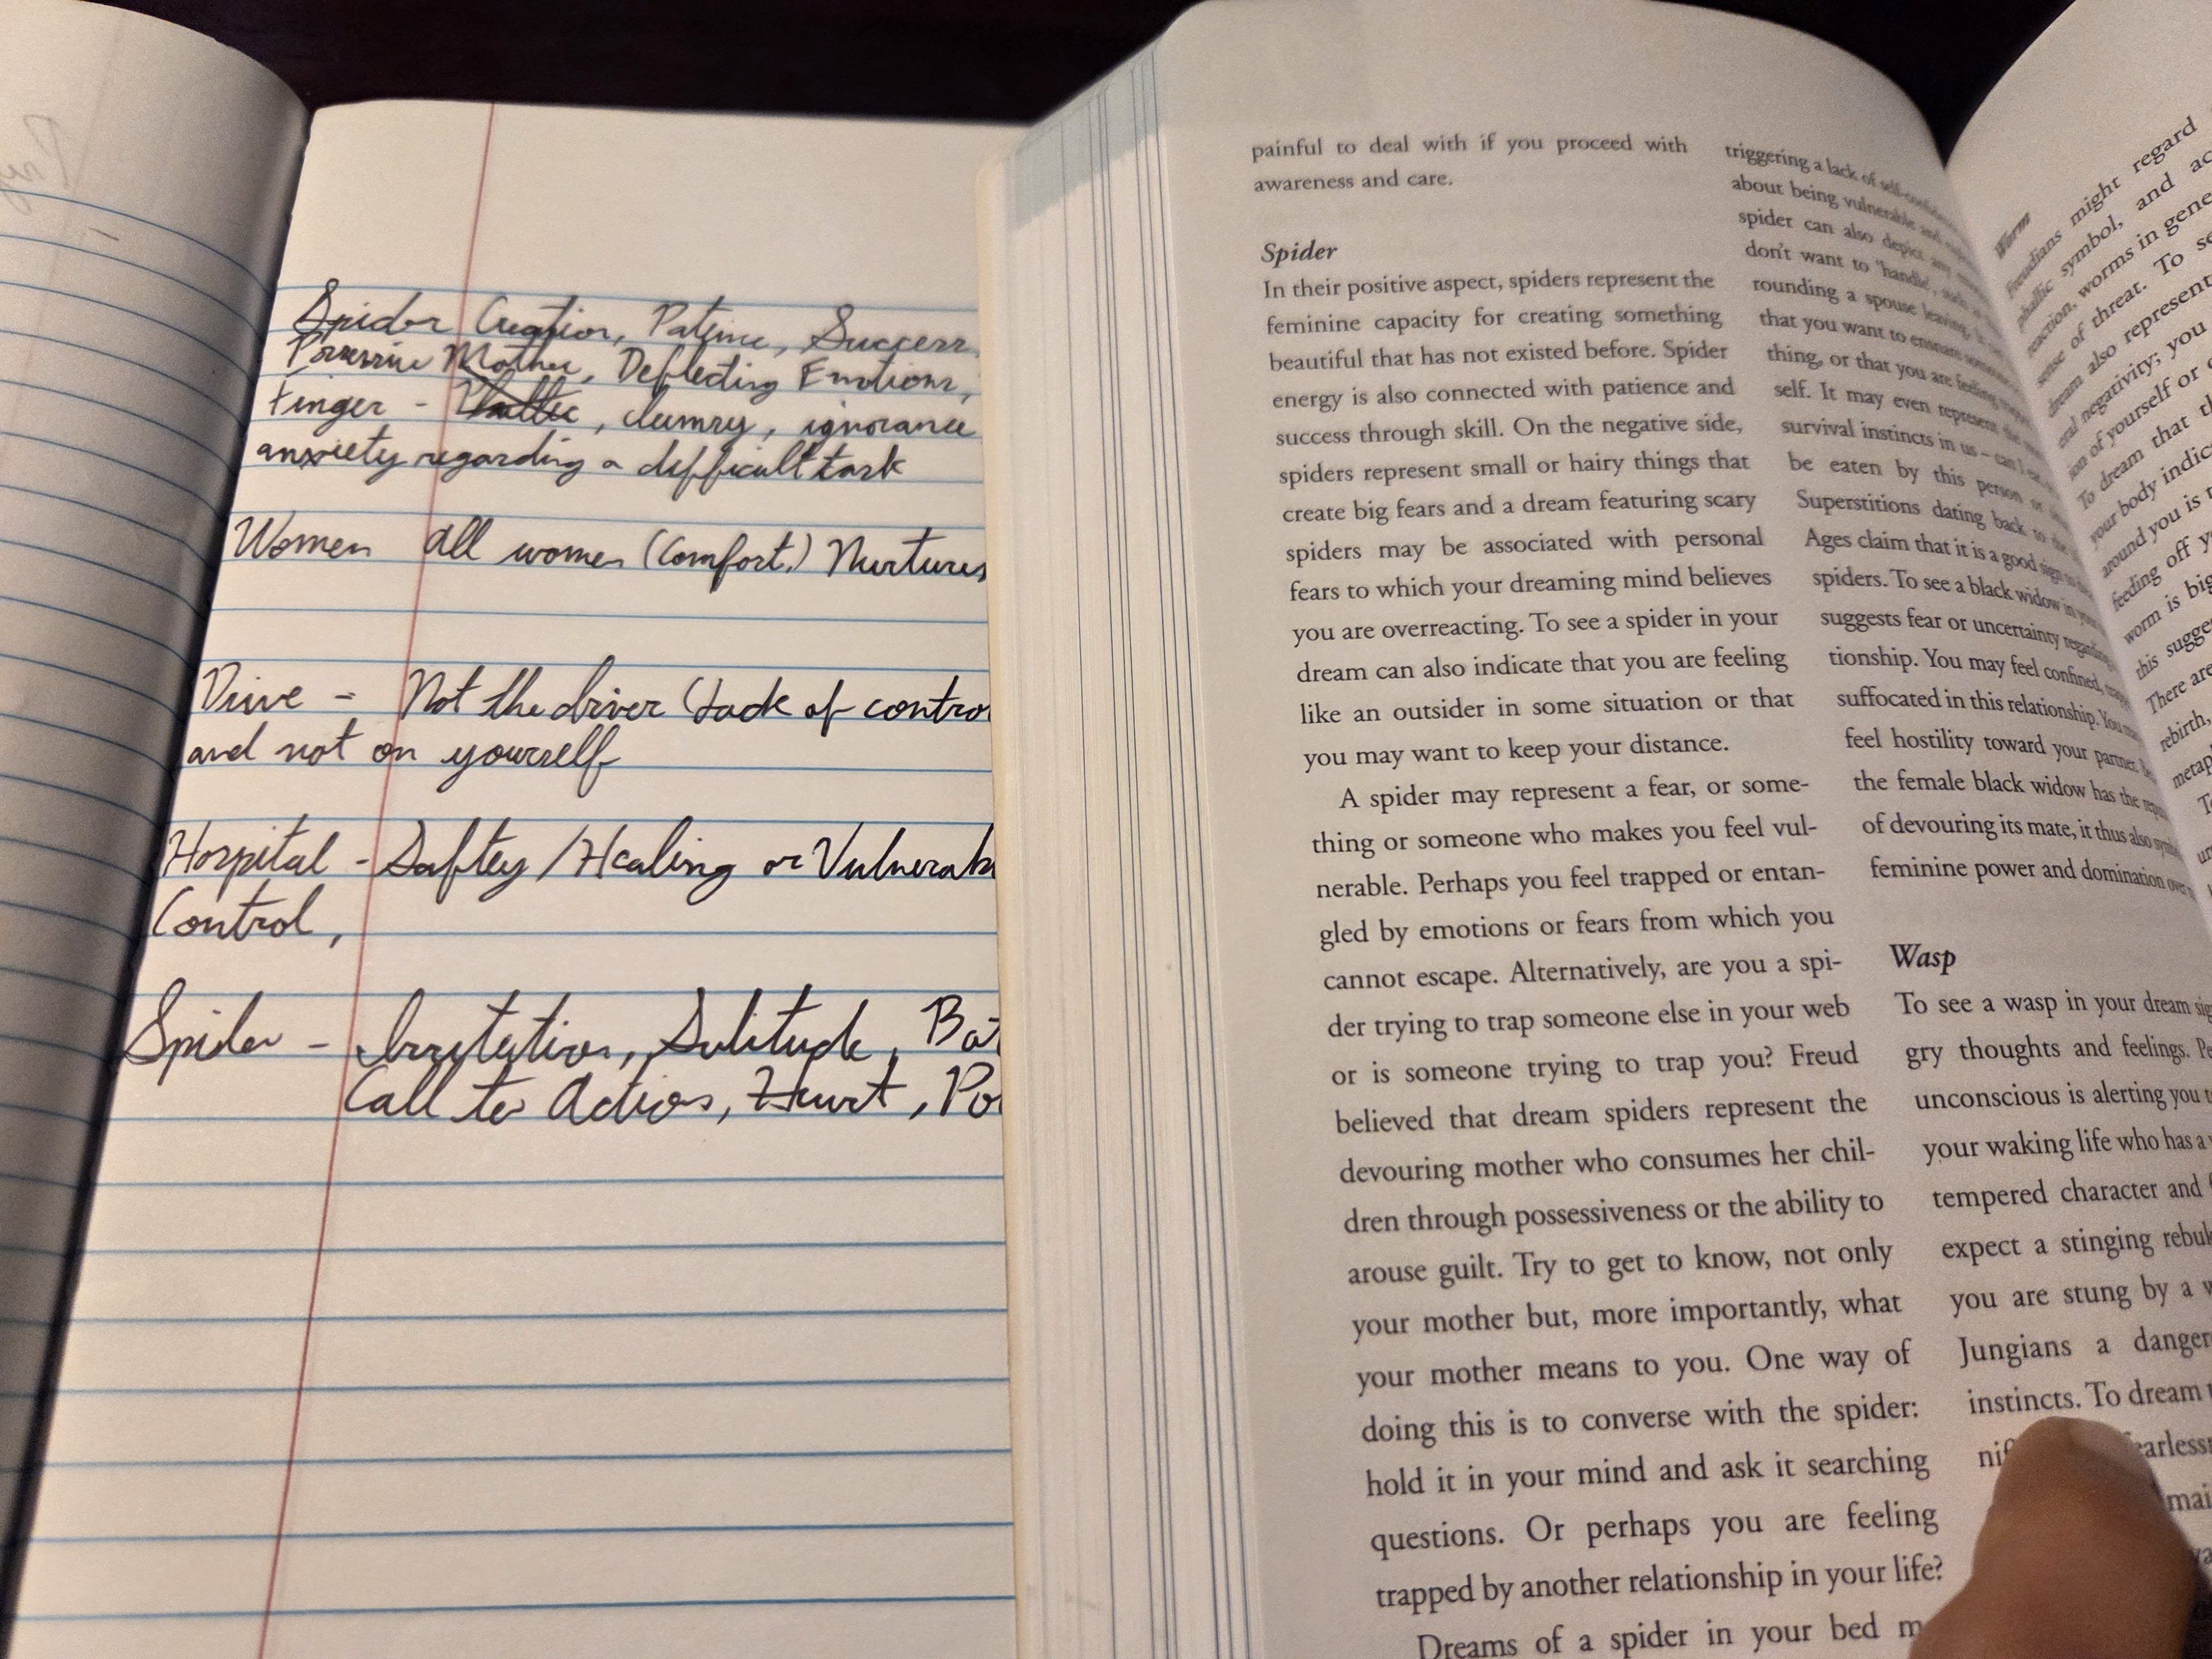 Spider Creation, Patience, Success
Mother, Deflecting Emotions,
Finger - , clumsy, ignorance
anxiety regarding a difficult task
Women All women (Comfort.) Nurtures
Drive - Not the driver (Lack of contro
and not on yourself
Hospital - Saftey / Healing or Vulnerab
Control,
Spider - Irritation, Solitude, Bat
Call to Action, Hurt, Po
painful to deal with if you proceed with
awareness and care.
Spider
In their positive aspect, spiders represent the
feminine capacity for creating something
beautiful that has not existed before. Spider
energy is also connected with patience and
success through skill. On the negative side,
spiders represent small or hairy things that
create big fears and a dream featuring scary
spiders may be associated with personal
fears to which your dreaming mind believes
you are overreacting. To see a spider in your
dream can also indicate that you are feeling
like an outsider in some situation or that
you may want to keep your distance.
A spider may represent a fear, or some-
thing or someone who makes you feel vul-
nerable. Perhaps you feel trapped or entan-
gled by emotions or fears from which you
cannot escape. Alternatively, are you a spi-
der trying to trap someone else in your web
or is someone trying to trap you? Freud
believed that dream spiders represent the
devouring mother who consumes her chil-
dren through possessiveness or the ability to
arouse guilt. Try to get to know, not only
your mother but, more importantly, what
your mother means to you. One way of
doing this is to converse with the spider:
hold it in your mind and ask it searching
questions. Or perhaps you are feeling
trapped by another relationship in your life?
Dreams of a spider in your bed m
triggering a lack of self-confidence
about being vulnerable and
spider can also depict any
don't want to 'handle',
rounding a spouse leaving.
that you want to ensnare
thing, or that you are feeling
self. It may even represent the
survival instincts in us – can I eat
be eaten by this person or
Superstitions dating back to the
Ages claim that it is a good sign to
spiders. To see a black widow in your
suggests fear or uncertainty regarding
tionship. You may feel confined,
suffocated in this relationship. You
feel hostility toward your partner.
the female black widow has the
of devouring its mate, it thus also
feminine power and domination over
Wasp
To see a wasp in your dream sig
gry thoughts and feelings. Pe
unconscious is alerting you t
your waking life who has a
tempered character and
expect a stinging rebuk
you are stung by a w
Jungians a danger
instincts. To dream
nif earless
mai
Worm
Freudians might regard
phallic symbol, and ac
reaction, worms in gene
sense of threat. To se
dream also represent
eral negativity; you
ion of yourself or
To dream that th
your body indic
around you is
feeding off y
worm is big
this sugge
There are
rebirth,
metap
T